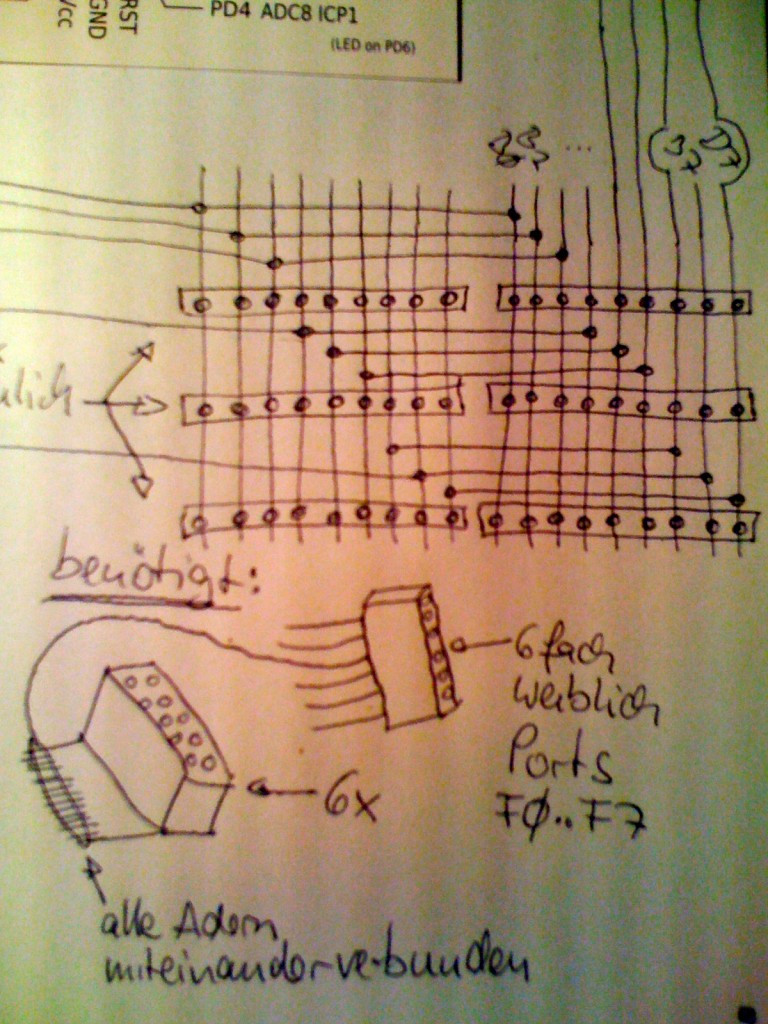 PD4 ADC8 ICP1
(LED on PD6)
RST
GND
Vcc
...
D7
benötigt:
6fach
weiblich
Ports
F0..F7
6x
alle Adern
miteinander verbunden